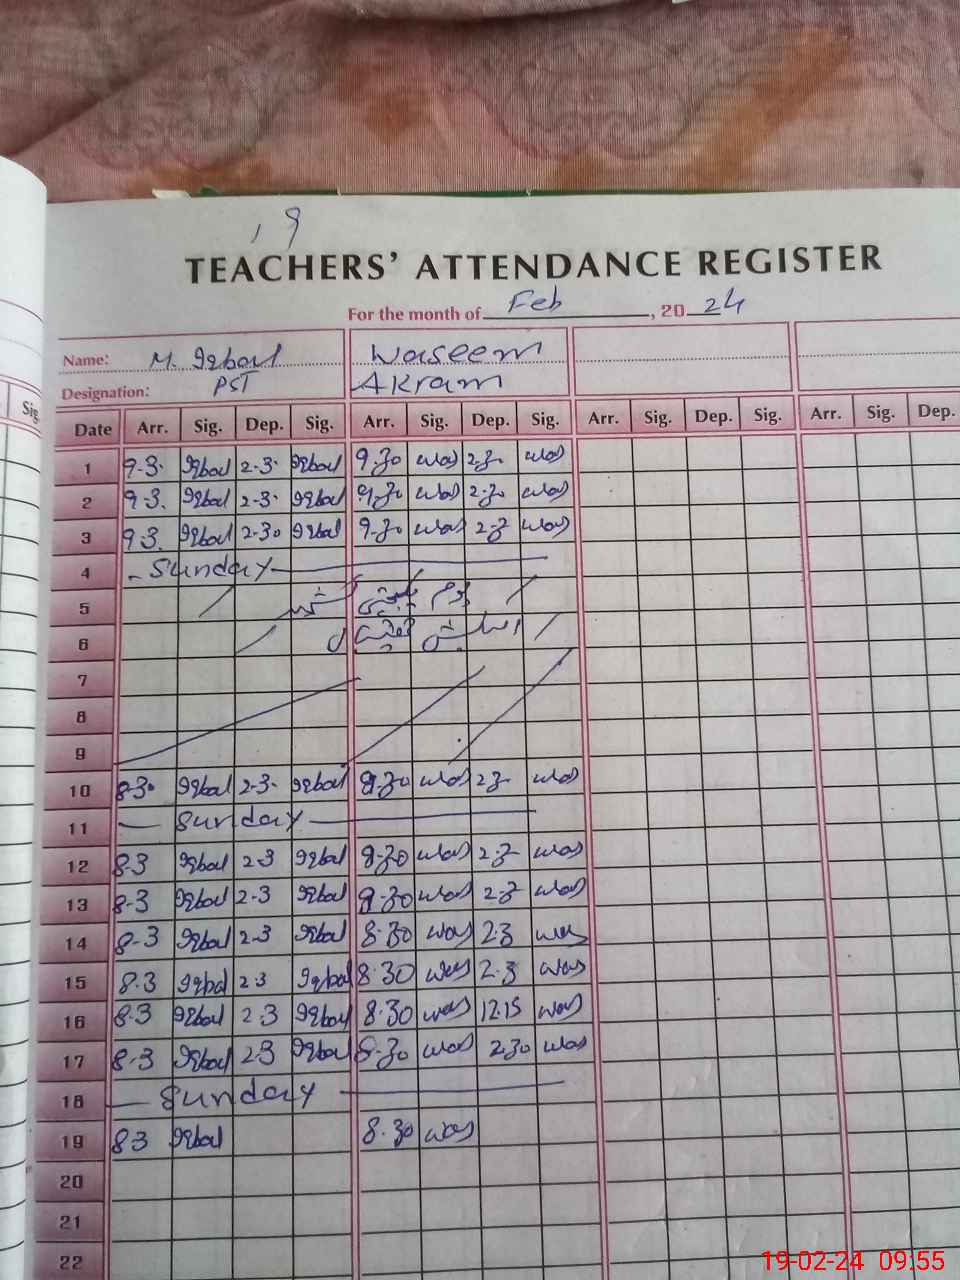 19
TEACHERS' ATTENDANCE REGISTER
For the month of Feb, 2024
Name: M. Iqbal Waseem
Designation: PST Akram
Sig.
Date Arr. Sig. Dep. Sig. Arr. Sig. Dep. Sig. Arr. Sig. Dep. Sig. Arr. Sig. Dep.
1 9-3. Iqbal 2-3. Iqbal 9.30 was 2.30 was
2 9-3. Iqbal 2-3. Iqbal 9.30 was 2.30 was
3 9-3. Iqbal 2-30 Iqbal 9.30 was 2-3 was
4 - Sunday
5
6
7
8
9
10 8-30 Iqbal 2-3. Iqbal 8.30 was 2.3 was
11 Sunday
12 8-3 Iqbal 2-3 Iqbal 8.30 was 2-3 was
13 8-3 Iqbal 2-3 Iqbal 8.30 was 2-3 was
14 8-3 Iqbal 2-3 Iqbal 8.30 was 2.3 was
15 8.3 Iqbal 2.3 Iqbal 8.30 was 2.3 was
16 8.3 Iqbal 2.3 Iqbal 8.30 was 12.15 was
17 8-3 Iqbal 2-3 Iqbal 8.30 was 2.30 was
18 Sunday
19 8.3 Iqbal 8.30 was
20
21
22
19-02-24 09:55